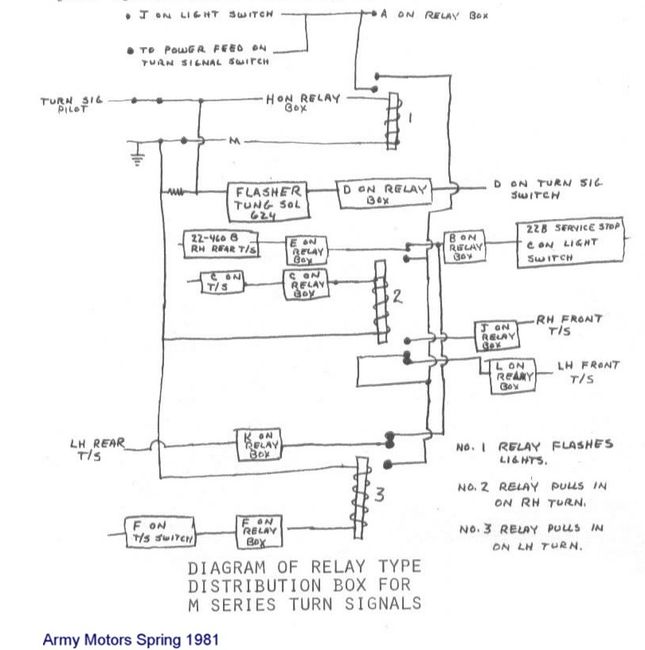 J ON LIGHT SWITCH
A ON RELAY BOX
TO POWER FEED ON
TURN SIGNAL SWITCH
TURN SIG
PILOT
H ON RELAY
BOX
1
M
FLASHER
TUNG SOL
624
D ON RELAY
BOX
D ON TURN SIG
SWITCH
22-460 B
RH REAR T/S
E ON
RELAY
BOX
B ON
RELAY
BOX
22B SERVICE STOP
C ON LIGHT
SWITCH
C ON
T/S
C ON
RELAY
BOX
2
J ON
RELAY
BOX
RH FRONT
T/S
L ON
RELAY
BOX
LH FRONT
T/S
LH REAR
T/S
K ON
RELAY
BOX
3
NO. 1 RELAY FLASHES
LIGHTS.
NO. 2 RELAY PULLS IN
ON RH TURN.
NO. 3 RELAY PULLS IN
ON LH TURN.
F ON
T/S SWITCH
F ON
RELAY
BOX
DIAGRAM OF RELAY TYPE
DISTRIBUTION BOX FOR
M SERIES TURN SIGNALS
Army Motors Spring 1981